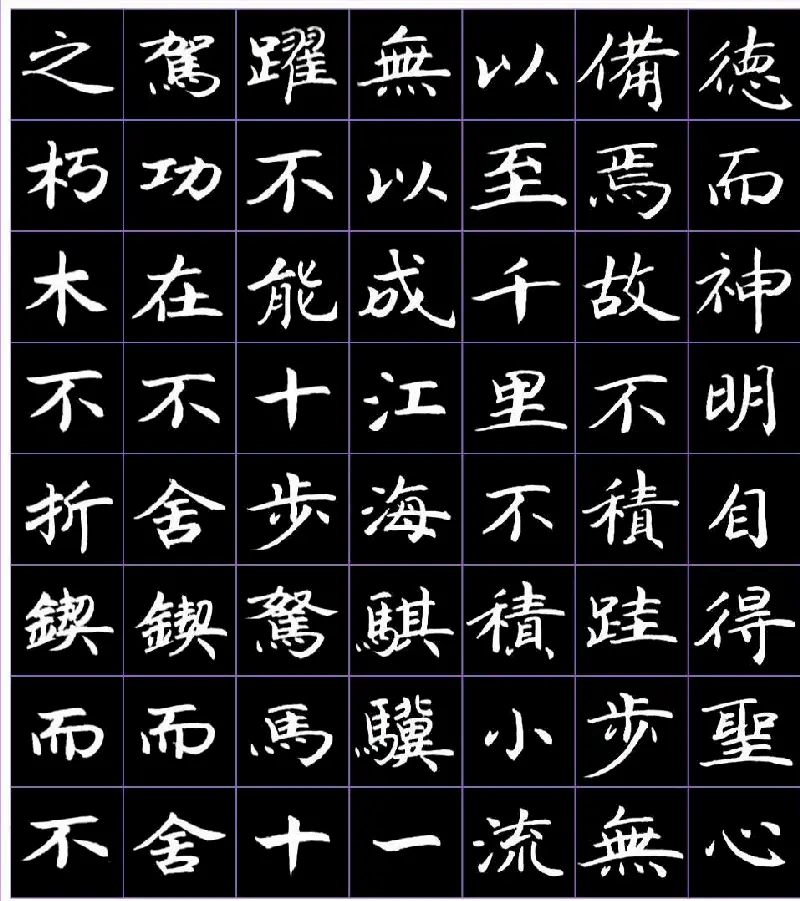 徳而神明自得聖心
備焉故不積跬步無
以至千里不積小流
無以成江海騏驥一
躍不能十步駑馬十
駕功在不舍鍥而舍
之朽木不折鍥而不